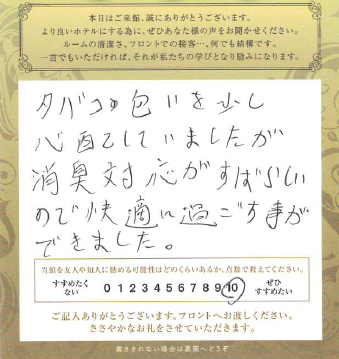 本日はご来館、誠にありがとうございます。
より良いホテルにする為に、ぜひあなた様の声をお聞かせください。
ルームの清潔さ、フロントでの接客…、何でも結構です。
一言でもいただければ、それが私たちの学びとなり励みになります。
タバコの匂いを少し
心配していましたが
消臭対応がすばらしい
ので快適に過ごす事が
できました。
当館を友人や知人に勧める可能性はどのくらいあるか、点数で教えてください。
すすめたくない 0 1 2 3 4 5 6 7 8 9 10 ぜひすすめたい
ご記入ありがとうございます。フロントへお渡しください。
ささやかなお礼をさせていただきます。
書ききれない場合は裏面へどうぞ